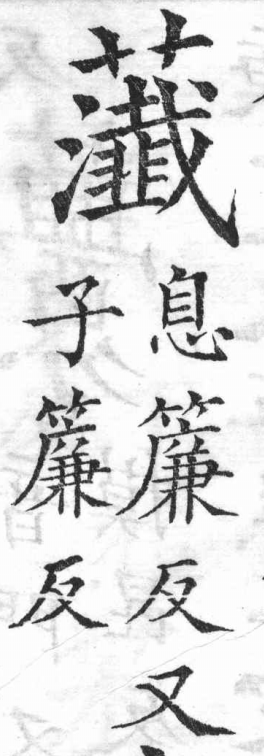 虃
息簾反又
子簾反